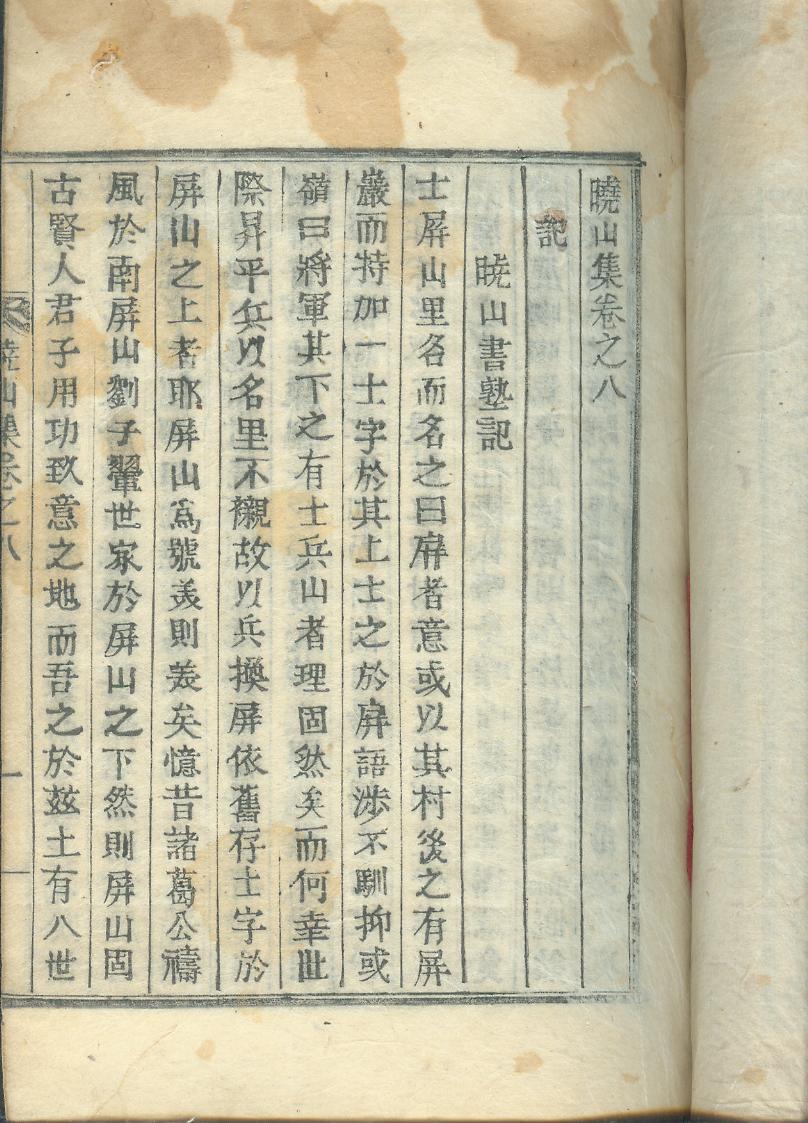 曉山集卷之八
記
曉山書塾記
士屛山里名而名之曰屛者意或以其村後之有屛
巖而特加一士字於其上士之於屛語涉不馴抑或
嶺曰將軍其下之有士兵山者理固然矣而何幸世
際昇平兵以名里不襯故以兵換屛依舊存士字於
屛山之上者耶屛山爲號美則美矣憶昔諸葛公禱
風於南屛山劉子翬世家於屛山之下然則屛山固
古賢人君子用功致意之地而吾之於玆土有八世
曉山集卷之八 一